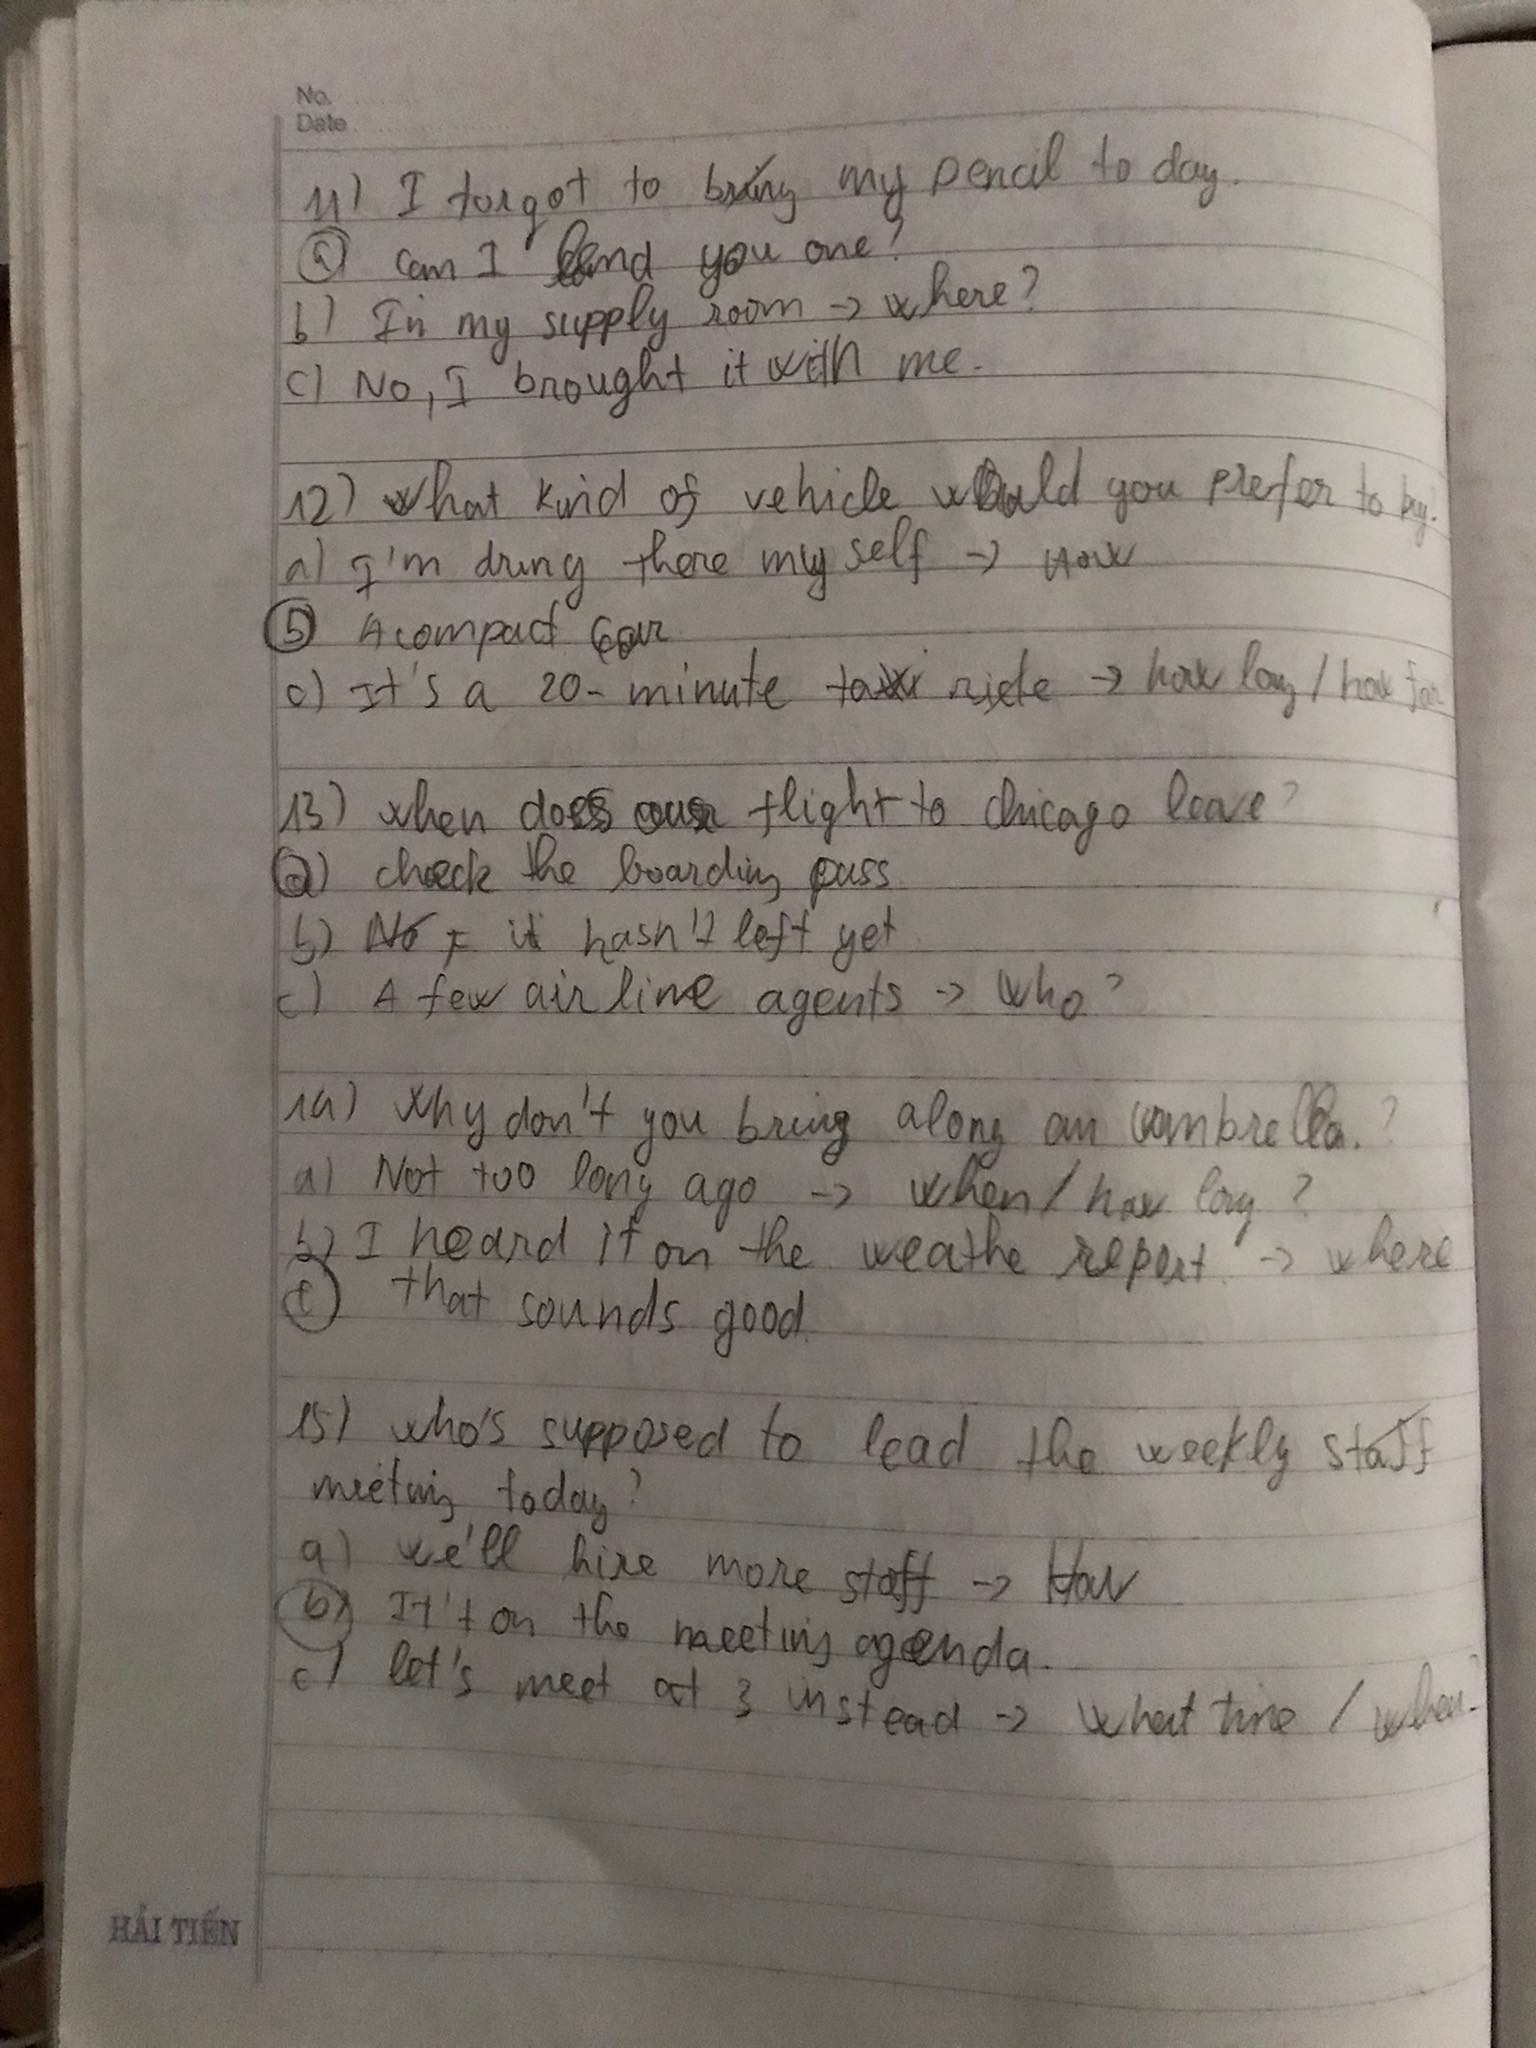 No.
Date
11) I forgot to bring my pencil to day.
a) Can I lend you one?
b) In my supply room -> where?
c) No, I brought it with me.
12) What kind of vehicle would you prefer to buy?
a) I'm dring there my self -> How
b) A compact car
c) It's a 20-minute taxi ride -> how long / how far
13) When does our flight to chicago leave?
a) check the boarding pass
b) No, it hasn't left yet
c) A few air line agents -> Who?
14) Why don't you bring along an umbrella.?
a) Not too long ago -> when / how long?
b) I heard it on the weathe report. -> where
c) that sounds good.
15) who's supposed to lead the weekly staff
meeting today?
a) we'll hire more staff -> How
b) It't on the meeting agenda.
c) let's meet at 3 instead -> what time / when?
HẢI TIẾN